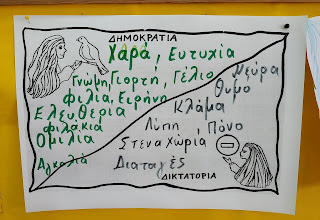 ΔΗΜΟΚΡΑΤΙΑ
Χαρά, Ευτυχία
Γνώμη, Γιορτή, Γέλιο
Φιλία, Ειρήνη
Ελευθερία
Φιλάκια
Ομιλία
Αγκαλιά
Μαύρα
Θυμο
Κλάμα
Λύπη, Πόνο
Στεναχώρια
Διαταγές
ΔΙΚΤΑΤΟΡΙΑ